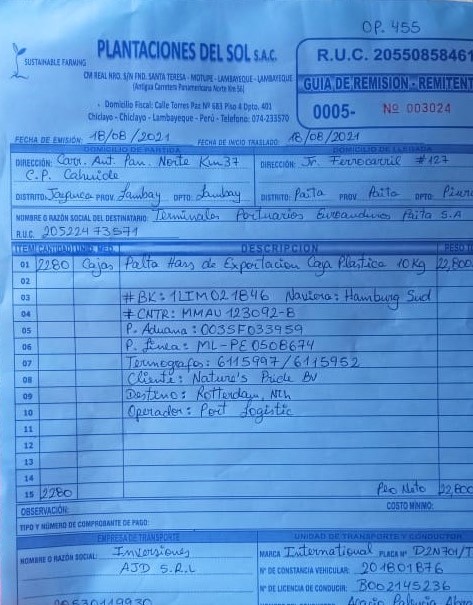 OP. 455
SUSTAINABLE FARMING
PLANTACIONES DEL SOL S.A.C.
CM REAL NRO. S/N FND. SANTA TERESA - MOTUPE - LAMBAYEQUE - LAMBAYEQUE
(Antigua Carretera Panamericana Norte Km 56)
• Domicilio Fiscal: Calle Torres Paz Nº 683 Piso 4 Dpto. 401
Chiclayo - Chiclayo - Lambayeque - Perú - Telefono: 074-233570
R.U.C. 20550858461
GUIA DE REMISION - REMITENT
0005- Nº 003024
FECHA DE EMISIÓN: 18/08/2021 FECHA DE INICIO TRASLADO: 18/08/2021
DOMICILIO DE PARTIDA DOMICILIO DE LLEGADA
DIRECCIÓN: Carr. Ant. Pan. Norte Km 37 DIRECCIÓN: Jr. Ferrocarril #127
C.P. Cahuide
DISTRITO: Jayanca PROV. Lambay DPTO: Lambay DISTRITO: Paita PROV. Paita DPTO: Piura
NOMBRE O RAZÓN SOCIAL DEL DESTINATARIO: Terminales Portuarios Euroandinos Paita S.A
R.U.C. 20522473571
ITEM CANTIDAD UNID. MED. DESCRIPCION PESO
01 2280 Cajas Palta Hass de Exportacion Caja Plastica 10Kg 22,800
02
03 #BK: 1LIM021846 Naviera: Hamburg Sud
04 # CNTR: MMAU 123092-8
05 P. Aduana: 0035F033959
06 P. linea: ML-PE0508674
07 Termografos: 6115997/6115952
08 Cliente: Nature's Pride BV
09 Destino: Rotterdam, Nth
10 Operador: Port Logistic
11
12
13
14
15 2280 Peso Neto 22,800
OBSERVACIÓN: COSTO MÍNIMO:
TIPO Y NÚMERO DE COMPROBANTE DE PAGO:
EMPRESA DE TRANSPORTE UNIDAD DE TRANSPORTE Y CONDUCTOR
NOMBRE O RAZÓN SOCIAL: Inversiones MARCA International PLACA Nº D2N701/T
AJD S.R.L Nº DE CONSTANCIA VEHICULAR: 201801876
Nº DE LICENCIA DE CONDUCIR: B002145236